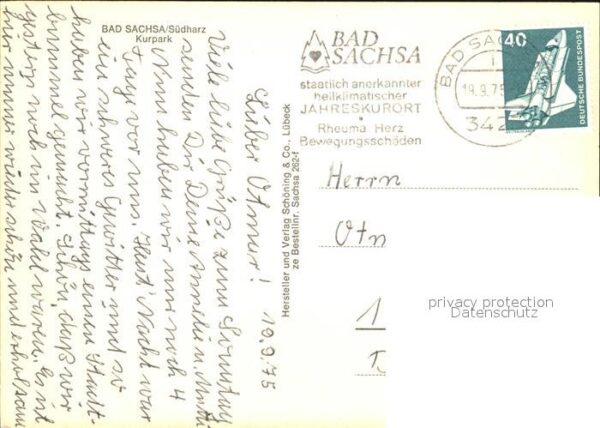 BAD SACHSA/Südharz
Kurpark
Lieber Otmar! 19.9.75
Viele liebe Grüße zum Sonntag
senden Dir Deine Annelie u. Mutti
Nun haben wir nur noch 4
Tag vor uns. Heut' Nacht war
ein schweres Gewitter und so
haben wir vormittags einen Stadt-
bummel gemacht. Schön, daß wir
gestern noch im Wald waren. Es ist
hier immer wieder schön und erholsam
Hersteller und Verlag Schöning & Co., Lübeck
ze Bestellnr. Sachsa 262-f
BAD
SACHSA
staatlich anerkannter
heilklimatischer
JAHRESKURORT
Rheuma Herz
Bewegungsschäden
BAD SAC
19.9.75
342
40
DEUTSCHE BUNDESPOST
Herrn
Otm
1
privacy protection
Datenschutz